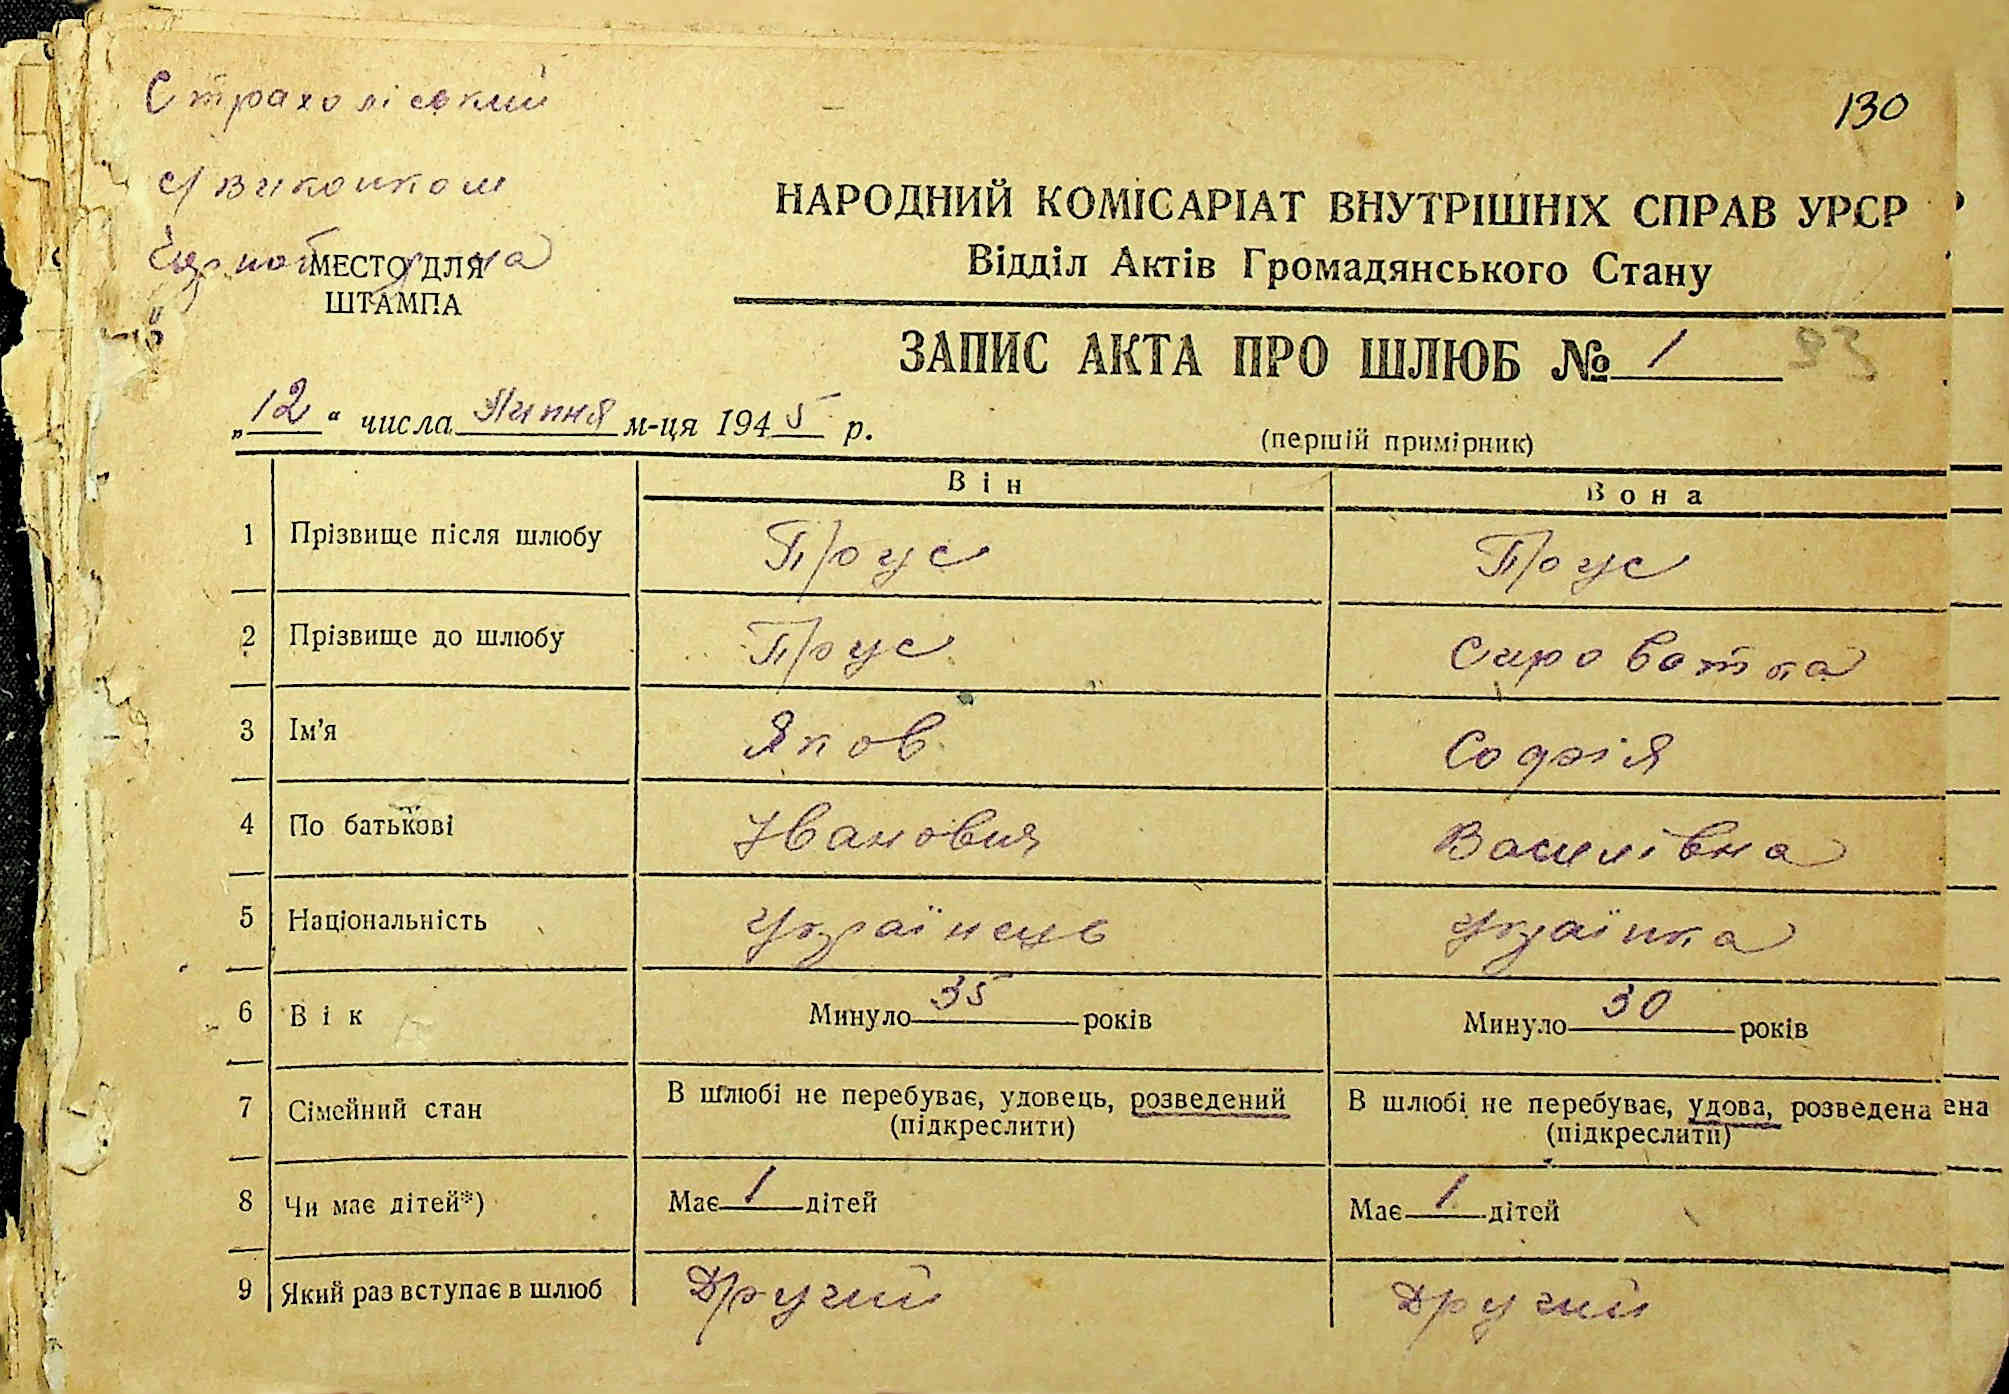 Страхоліський
130
с/виконком
НАРОДНИЙ КОМІСАРІАТ ВНУТРІШНІХ СПРАВ УРСР
Відділ Актів Громадянського Стану
МЕСТО ДЛЯ
ШТАМПА
ЗАПИС АКТА ПРО ШЛЮБ № 1 93
„12“ числа Липня м-ця 1945 р.
(першій примірник)
Він Вона
1 Прізвище після шлюбу Прус Прус
2 Прізвище до шлюбу Прус Сироватка
3 Ім’я Яков Софія
4 По батькові Іванович Василівна
5 Національність Українець Українка
6 Вік Минуло 35 років Минуло 30 років
7 Сімейний стан В шлюбі не перебуває, удовець, розведений В шлюбі не перебуває, удова, розведена ена
(підкреслити) (підкреслити)
8 Чи має дітей*) Має 1 дітей Має 1 дітей
9 Який раз вступає в шлюб Другий Другий